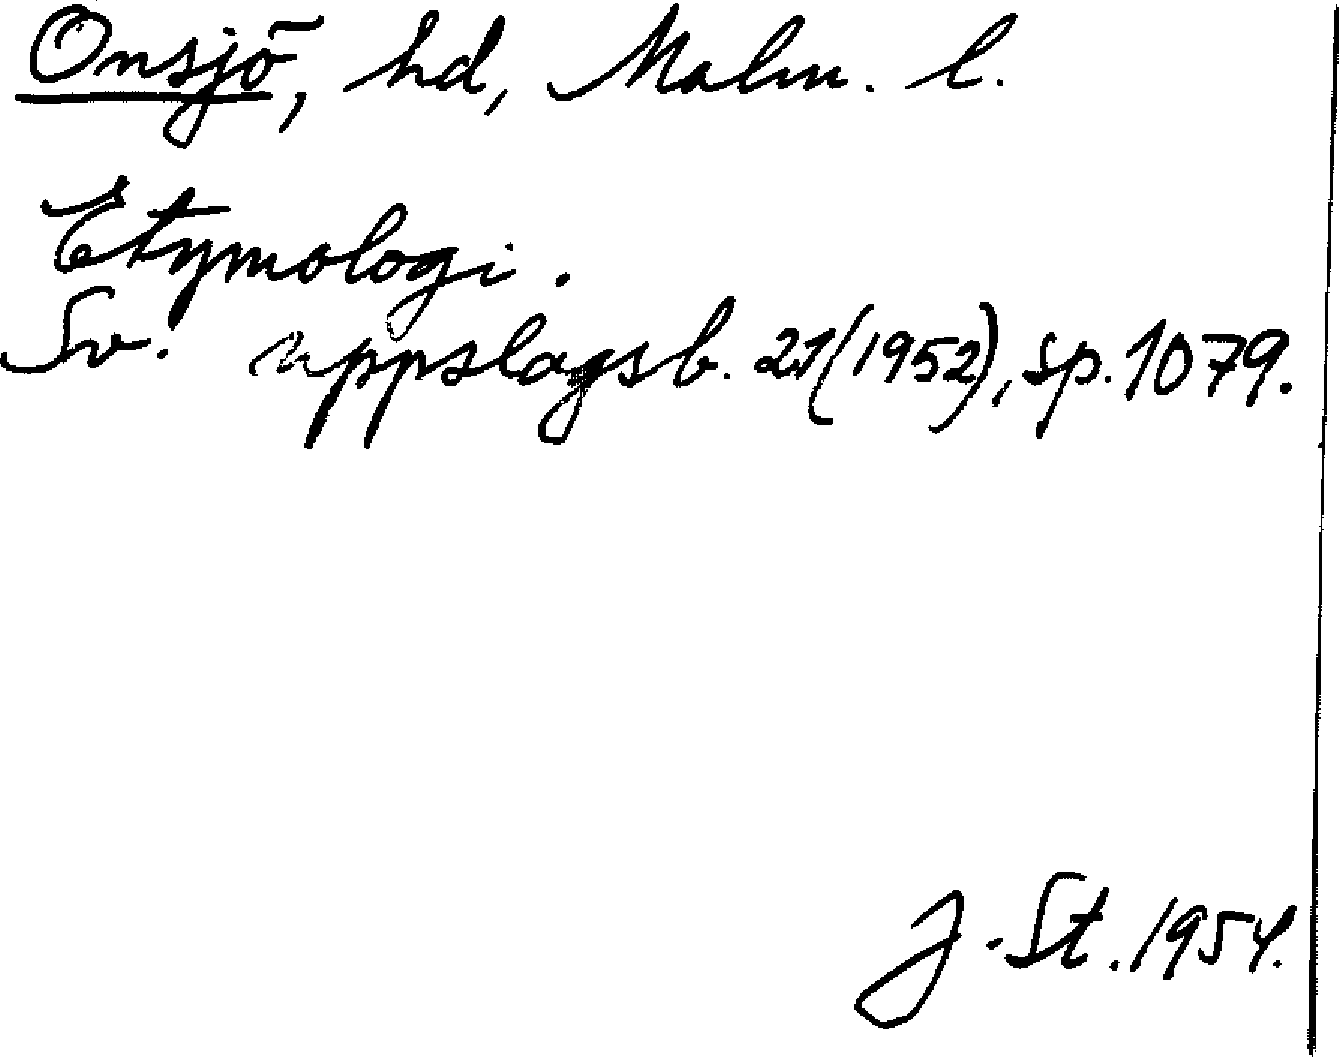 Onsjö, hd, Malm. l.
Etymologi.
Sv. uppslagsb. 21(1952), sp. 1079.
J. St. 1954.